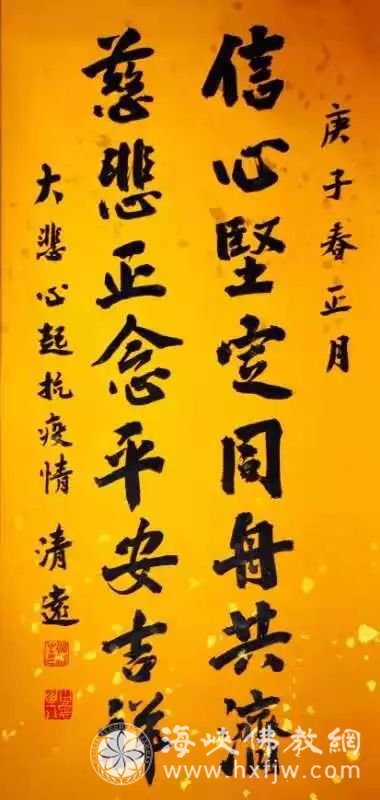 庚子春正月
信心堅定同舟共濟
慈悲正念平安吉祥
大悲心起抗疫情 清遠
海峡佛教網
www.hxfjw.com